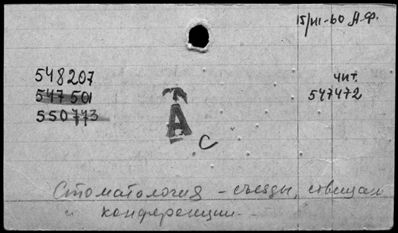 15/III-60 А.Ф.
548207
547501
550773
чит.
547472
А
с
Стоматология - съезды, совещан
и конференции.